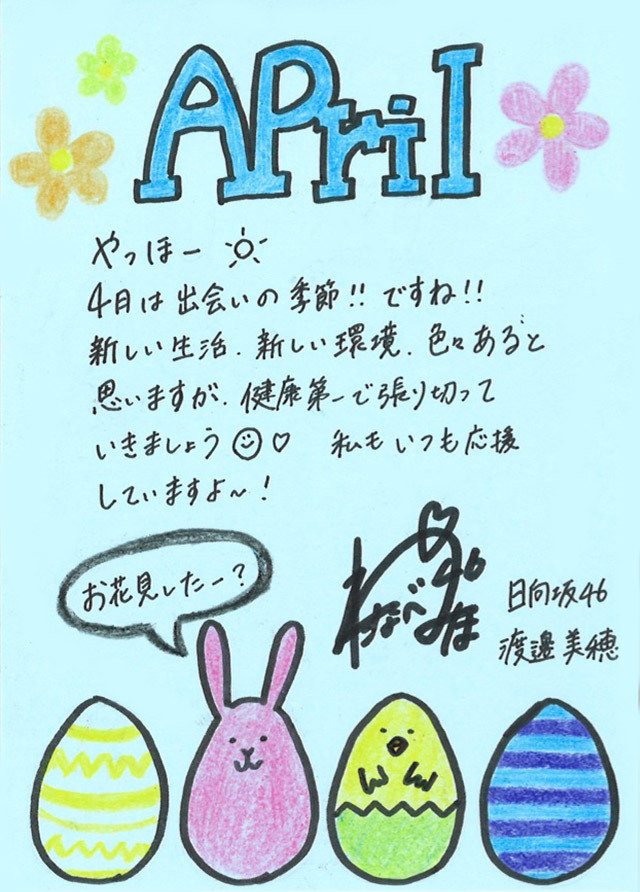 APril
やっほー
4月は出会いの季節!!ですね!!
新しい生活、新しい環境、色々あると
思いますが、健康第一で張り切って
いきましょう 私もいつも応援
していますよ〜!
お花見したー?
わたなべみほ 46
日向坂46
渡邉美穂